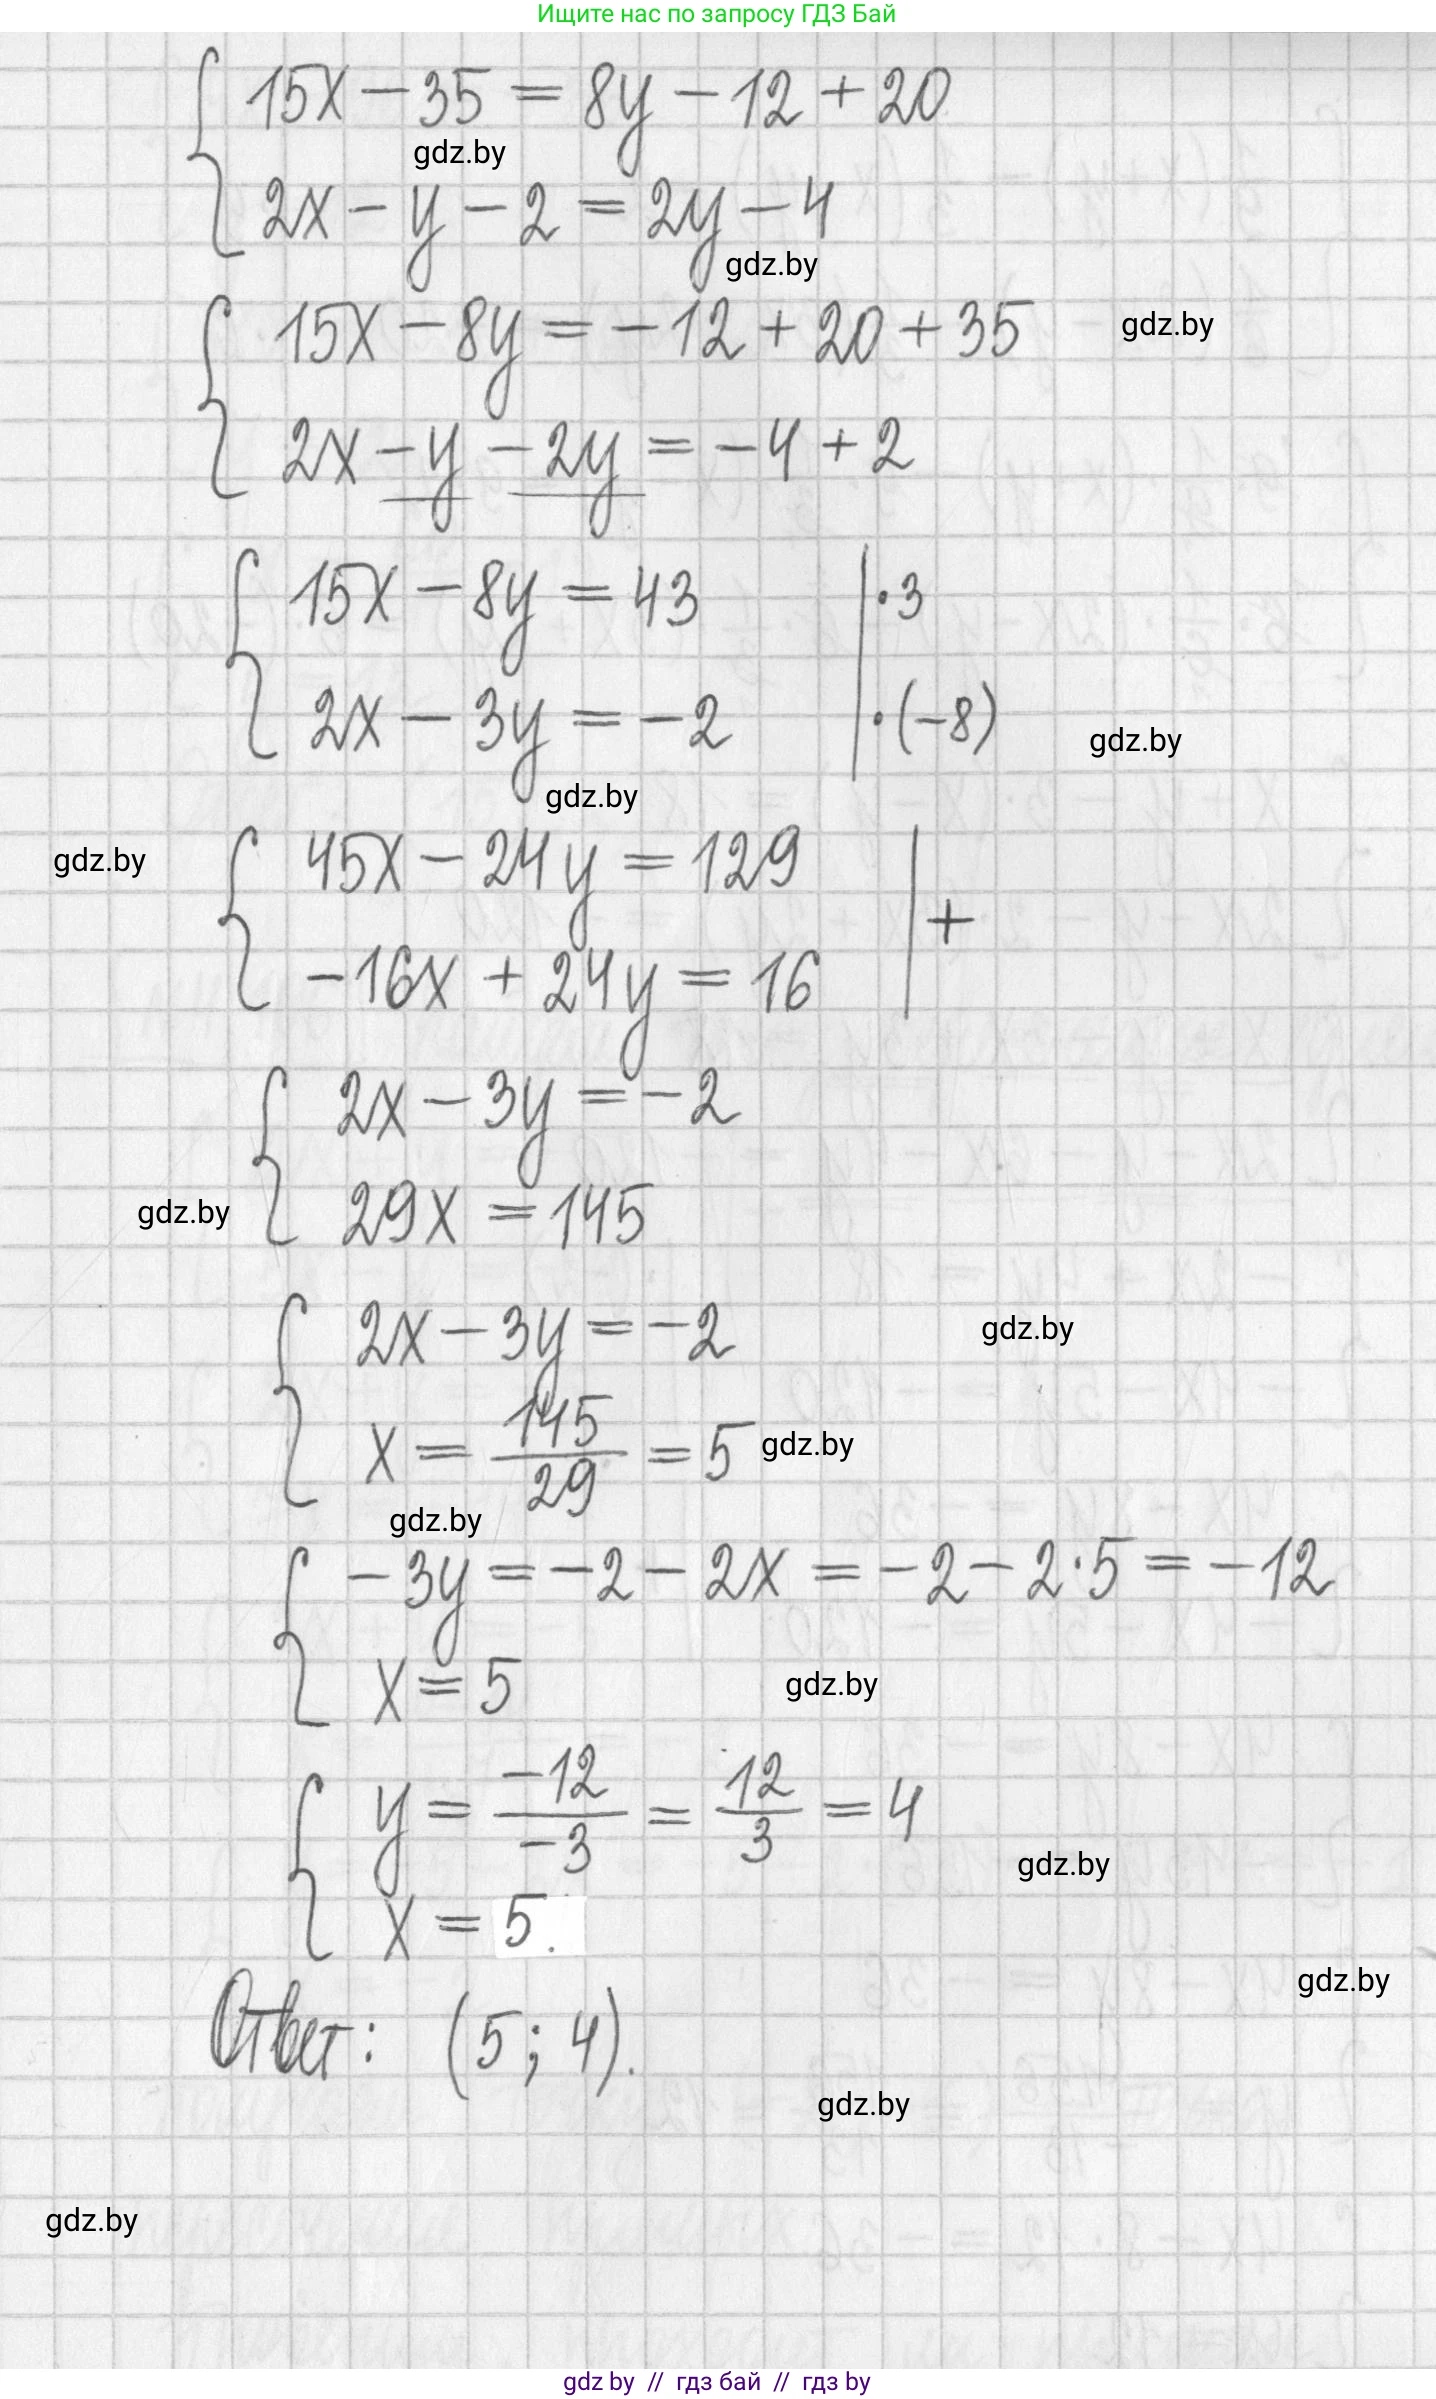 Ищите нас по запросу ГДЗ Бай
15x − 35 = 8y − 12 + 20
gdz.by
2x − y − 2 = 2y − 4
gdz.by
15x − 8y = −12 + 20 + 35
gdz.by
2x − y − 2y = −4 + 2
15x − 8y = 43 | · 3
2x − 3y = −2 | · (−8)
gdz.by
gdz.by
45x − 24y = 129
gdz.by
+
−16x + 24y = 16
2x − 3y = −2
29x = 145
gdz.by
2x − 3y = −2
gdz.by
x = 145/29 = 5
gdz.by
gdz.by
−3y = −2 − 2x = −2 − 2·5 = −12
x = 5
gdz.by
y = −12/−3 = 12/3 = 4
gdz.by
x = 5.
gdz.by
Ответ: (5; 4).
gdz.by
gdz.by
gdz by // гдз бай // гдз by